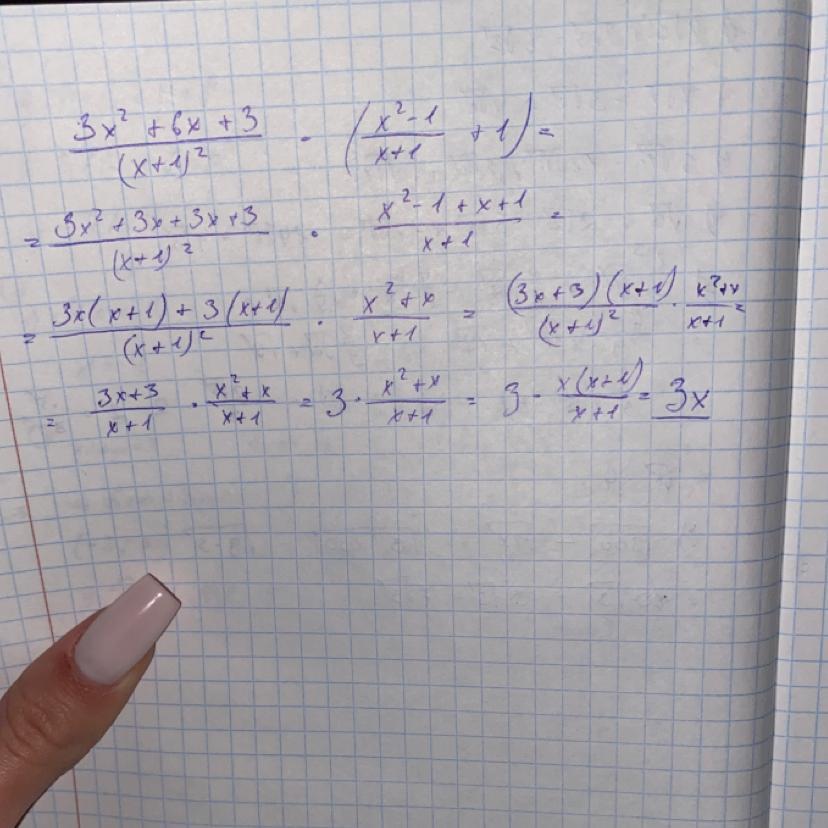 (3x² + 6x + 3)/(x+1)² · ((x² - 1)/(x+1) + 1) =
= (3x² + 3x + 3x + 3)/(x+1)² · (x² - 1 + x + 1)/(x+1) =
= (3x(x+1) + 3(x+1))/(x+1)² · (x² + x)/(x+1) = ((3x+3)(x+1))/(x+1)² · (x² + x)/(x+1) =
= (3x+3)/(x+1) · (x² + x)/(x+1) = 3 · (x² + x)/(x+1) = 3 · (x(x+1))/(x+1) = 3x